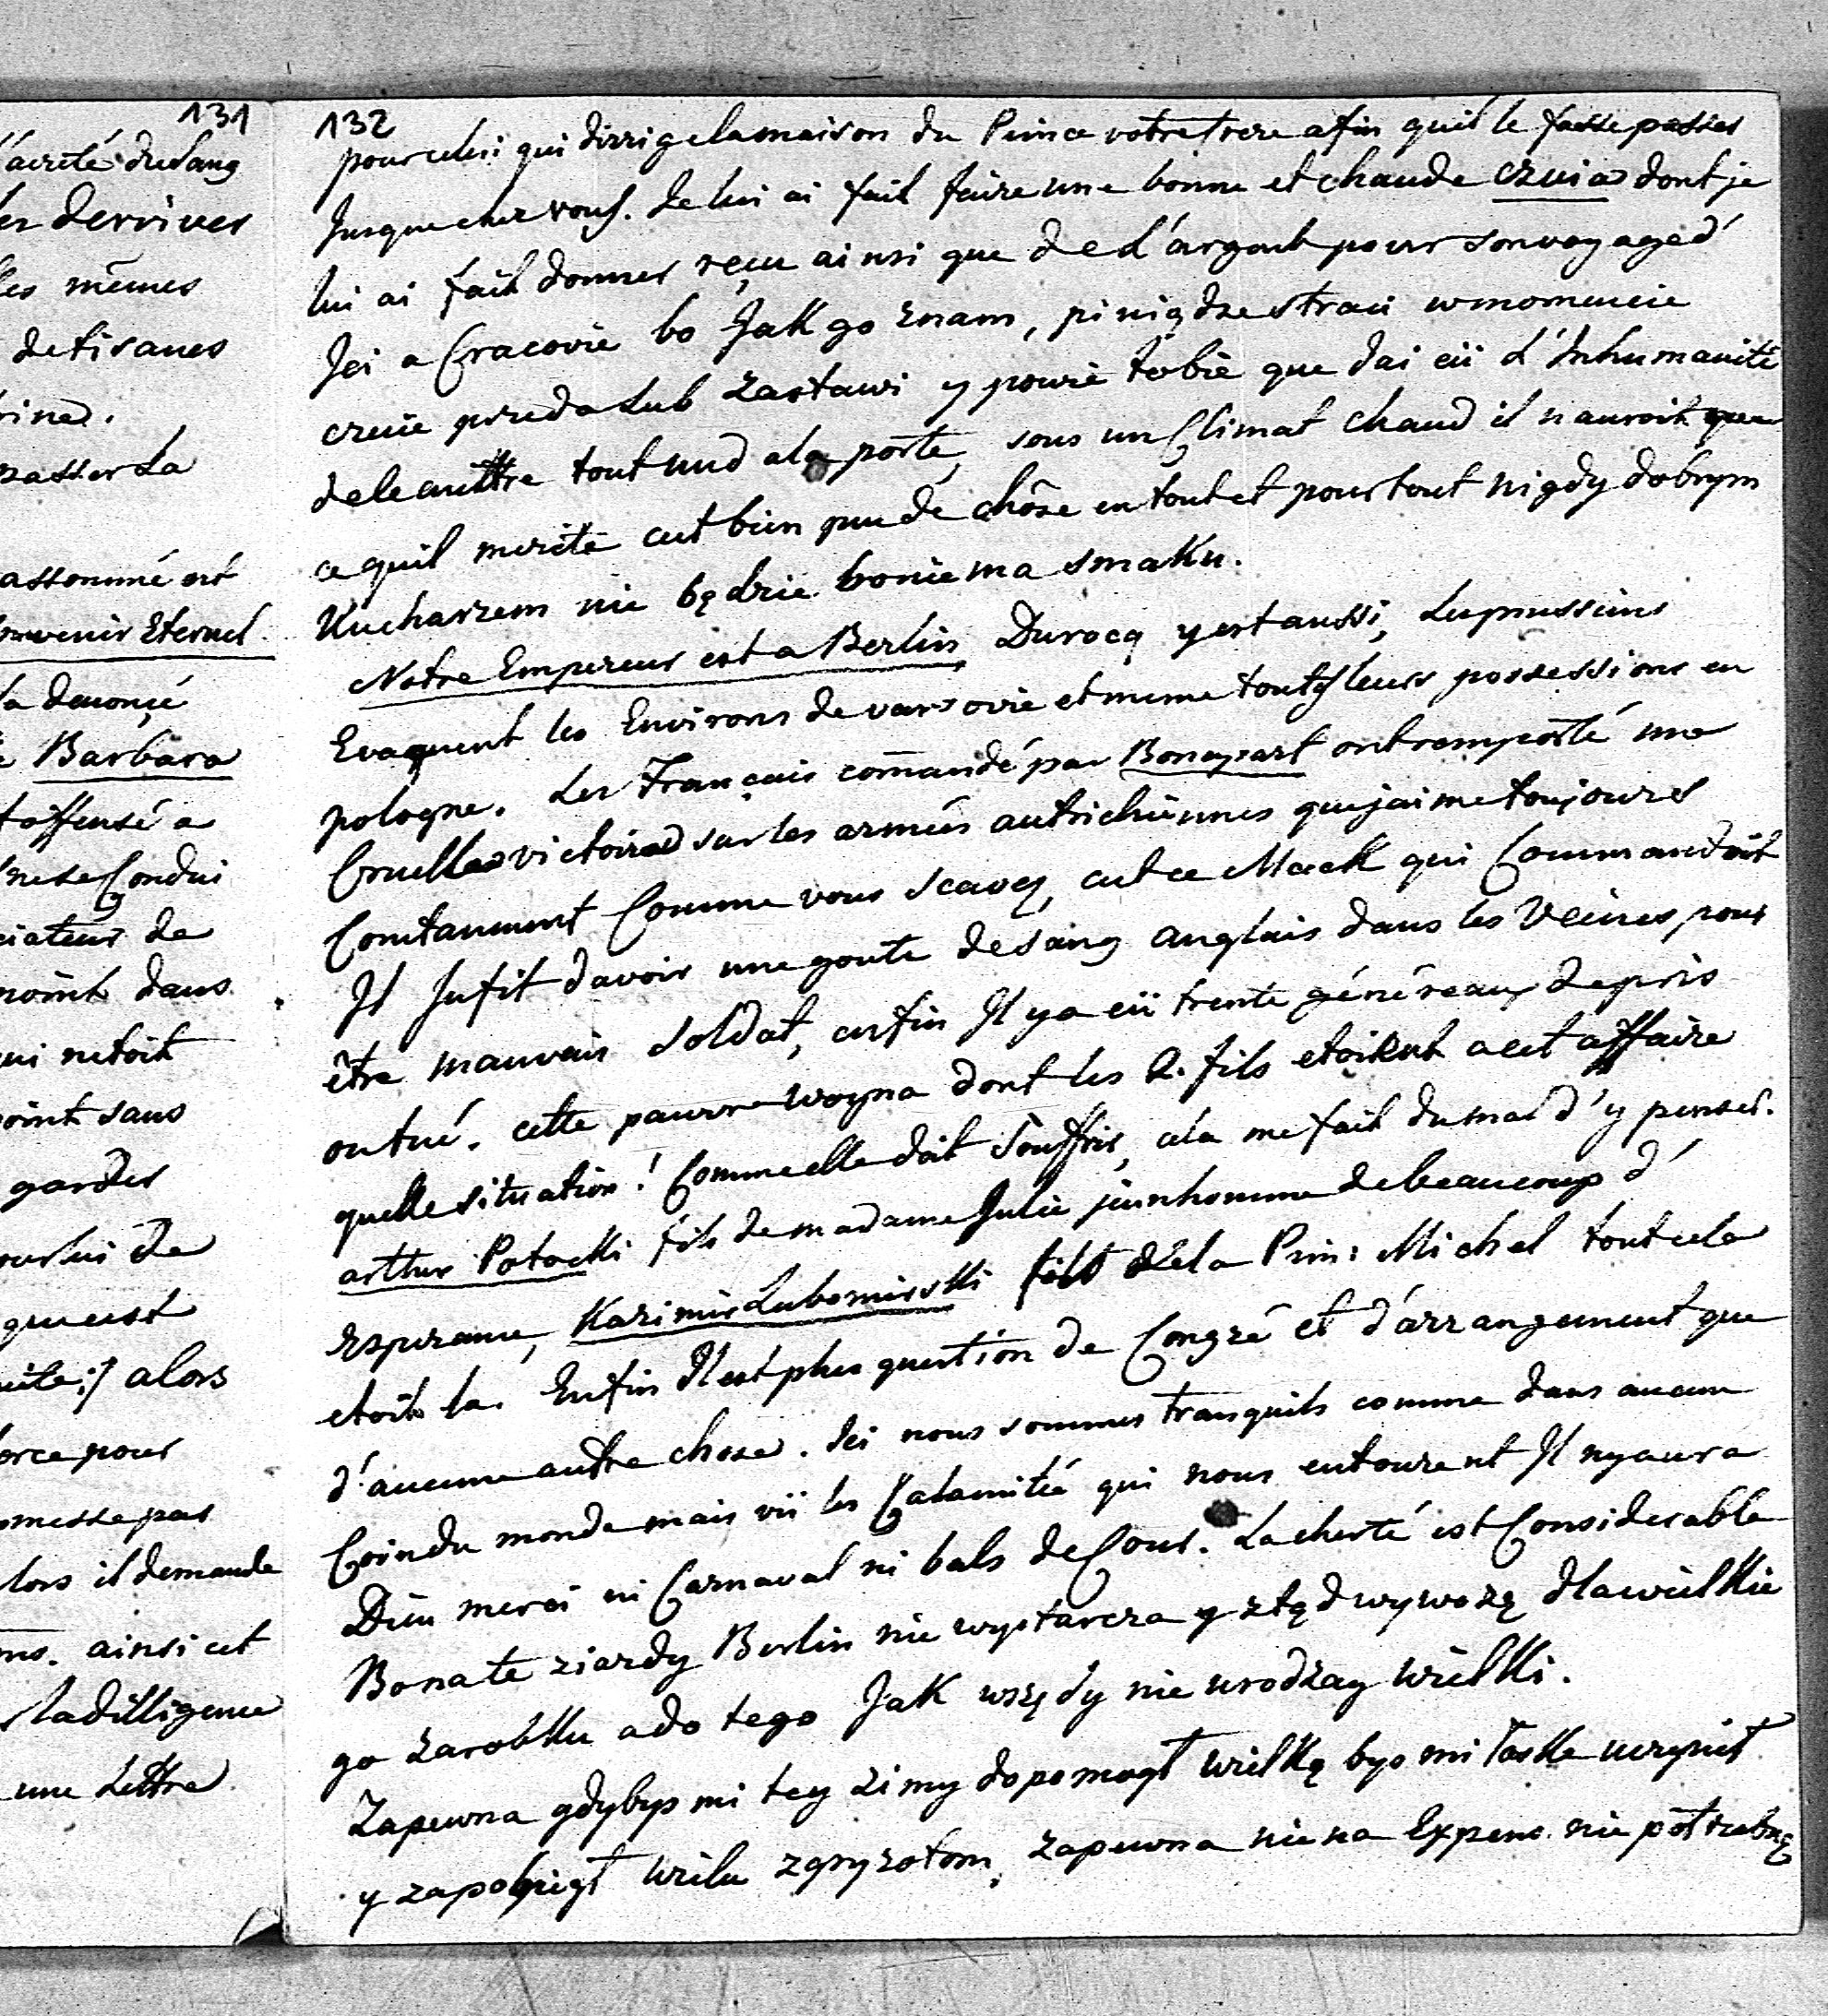 131
l'acreté du sang
les derrives
les mêmes
de tisanes
passer la
assommé est
souvenir Eternel.
la denonçé
Barbara
t offensé a
ne se Condui
ciateur de
point dans
qui netoit
point sans
gardes
pour lui de
que cest
alors
force pour
messe pas
lors il demande
ms. ainsi cet
la dilligence
une Lettre
132
pour celui qui dirrige la maison du Prince votre frere afin quil le fasse passer
Jusque chez vous. Je lui ai fait faire une bonne et chaude czuia dont je
lui ai fait donner reçu ainsi que de l'argent pour son voyage d'
Ici a Cracovie bo Jak go znam, piniądze straci w momencie
czuie przeda Lub zastawi y powie tobie que J'ai eü L'Inhumanité
de le mettre tout nud a la porte, sous un Climat chaud il n'auroit que
ce quil merite cest bien peu de chôse en tout et pour tout nigdy dobrym
Kucharzem nie będzie bo niema smaku.
Notre Empereur est a Berlin, Durocq y est aussi, Les prussiens
Evaquent les Environs de varsovie et meme toutes leurs possessions en
pologne. Les Français comandé par Bonapart ont remporté une
Cruelle victoire sur les armées autrichiennes que j'aime toujours
Constamment Comme vous scavez, cest ce Mack qui Commandoit
Il sufit d'avoir une goute de sang anglais dans les Veines, pour
être mauvais soldat, enfin Il y a eü trente généreaux de pris
ou tué. cette pauvre woyna dont les 2. fils etoient a cet affaire
quelle situation! Comme elle doit souffrir, cela me fait du mal d'y penser.
arthur Potocki fils de madame Julie jeun homme de beaucoup d'
Esperance, Kazimir Lubomirski fils de la Prin: Michel tout cela
etoit la. Enfin Il est plus question de Congré et d'arrangement que
d'aucune autre chose. Ici nous sommes tranquils comme dans aucun
Coin du monde mais vü les Calamitée qui nous entourent Il ny aura
Dieu merci ni Carnaval ni bals de Cour. La cherté est Considerable
Bo na te ziazdy Berlin nie wystarcza y ztąd wywożą dla wielkie
go zarobku a do tego Jak wszędy nie urodzay wielki.
Zapewna gdybys mi tey zimy dopomogł wielką bys mi łaske uczynił
y zapobiegł wielu zgryzotom, zapewna nie na Expens. nie potrzebną